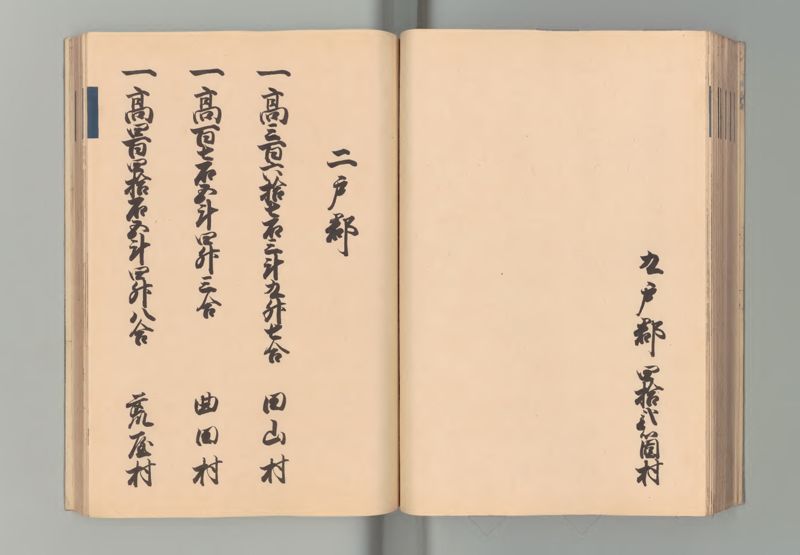 九戸郡 四拾弐箇村
二戸郡
一高三百六拾七石三斗九升七合 田山村
一高百七石五斗四升三合 曲田村
一高四百四拾石五斗四升八合 荒屋村